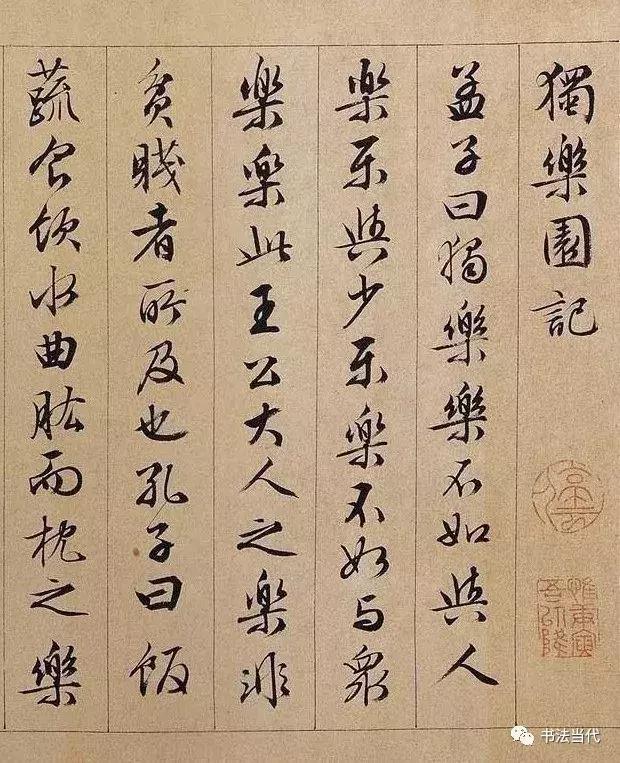 獨樂園記
孟子曰獨樂樂不如與人
樂樂與少樂樂不如与眾
樂樂此王公大人之樂非
貧賤者所及也孔子曰飯
蔬食飲水曲肱而枕之樂
惟庚寅吾以降
书法当代